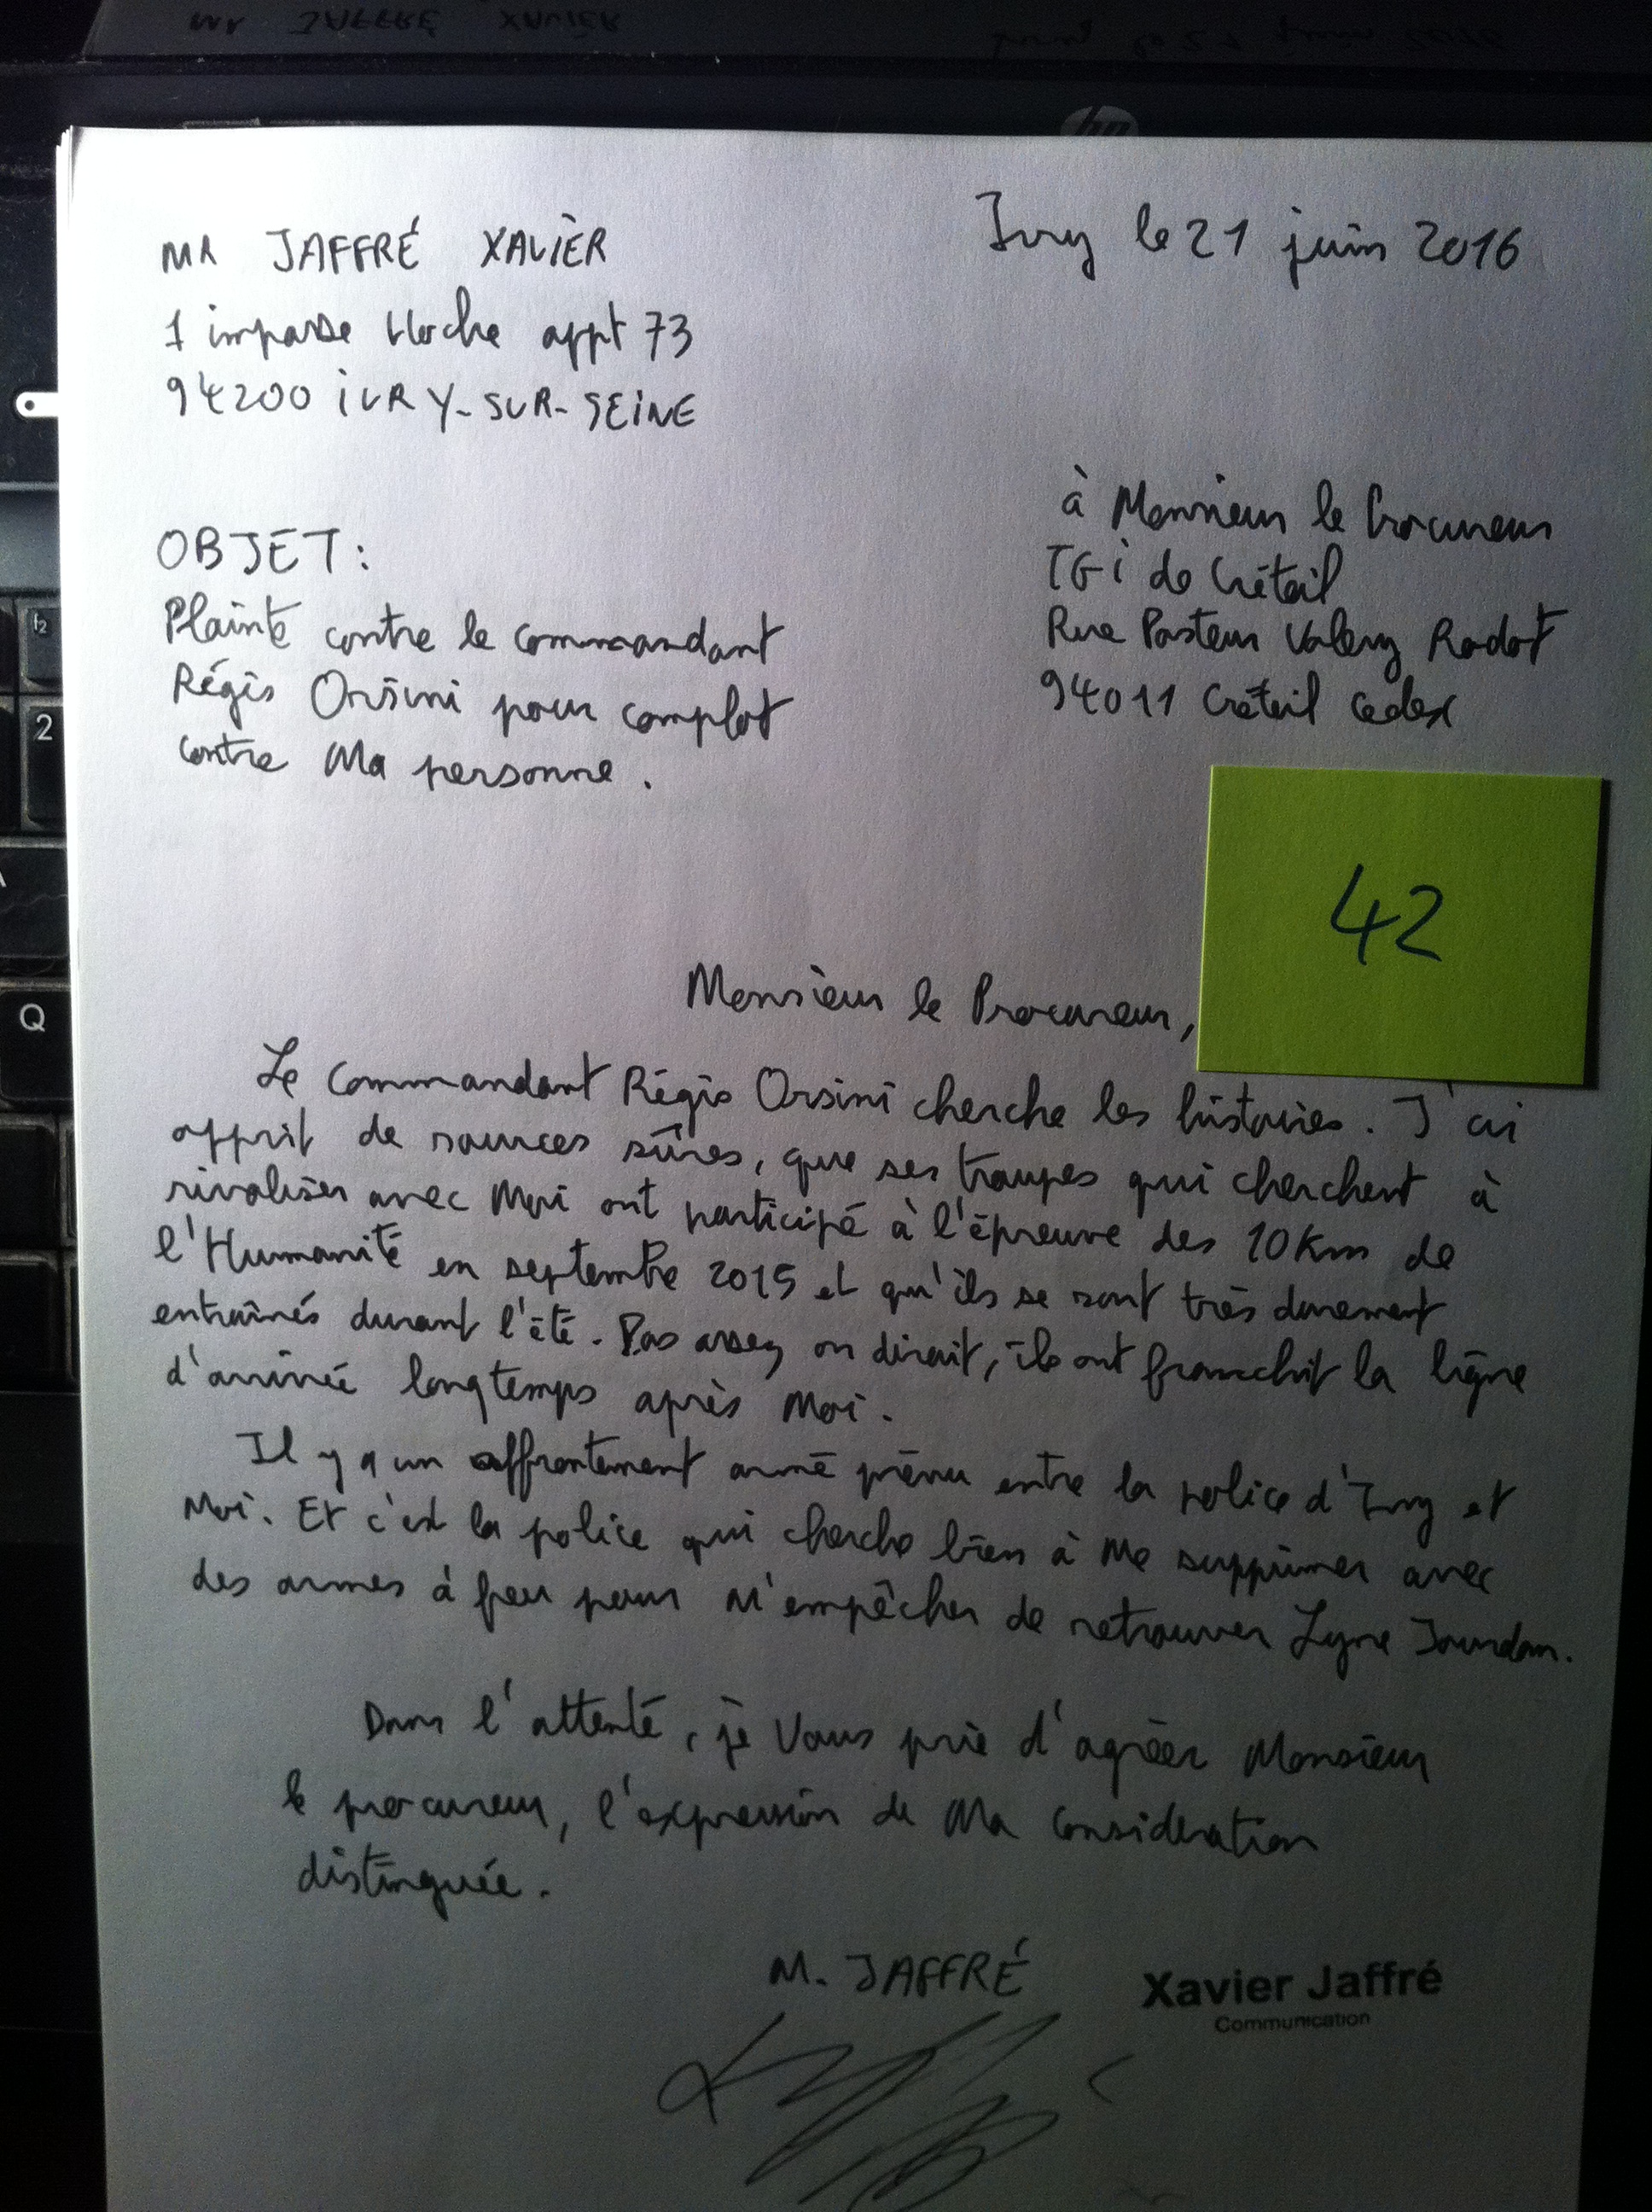 MR JAFFRÉ XAVIER
Ivry le 21 juin 2016
1 impasse Hoche appt 73
94200 IVRY-SUR-SEINE
à Monsieur le Procureur
TGI de Créteil
Rue Pasteur Valery Radot
94011 Créteil Cedex
OBJET:
Plainte contre le Commandant
Régis Orsini pour complot
contre Ma personne.
42
Monsieur le Procureur,
Le Commandant Régis Orsini cherche les histoires. J'ai
apprit de sources sûres, que ses troupes qui cherchent à
rivaliser avec Moi ont participé à l'épreuve des 10 Km de
l'Humanité en septembre 2015 et qu'ils se sont très durement
entraînés durant l'été. Pas assez on dirait, ils ont franchit la ligne
d'arrivée longtemps après Moi.
Il y a un affrontement armé prévu entre la police d'Ivry et
Moi. Et c'est la police qui cherche bien à Me supprimer avec
des armes à feu pour M'empêcher de retrouver Lyne Jourdan.
Dans l'attente, je Vous prie d'agréer Monsieur
le procureur, l'expression de Ma Considération
distinguée.
M. JAFFRÉ
Xavier Jaffré
Communication
hp
f2
2
Q